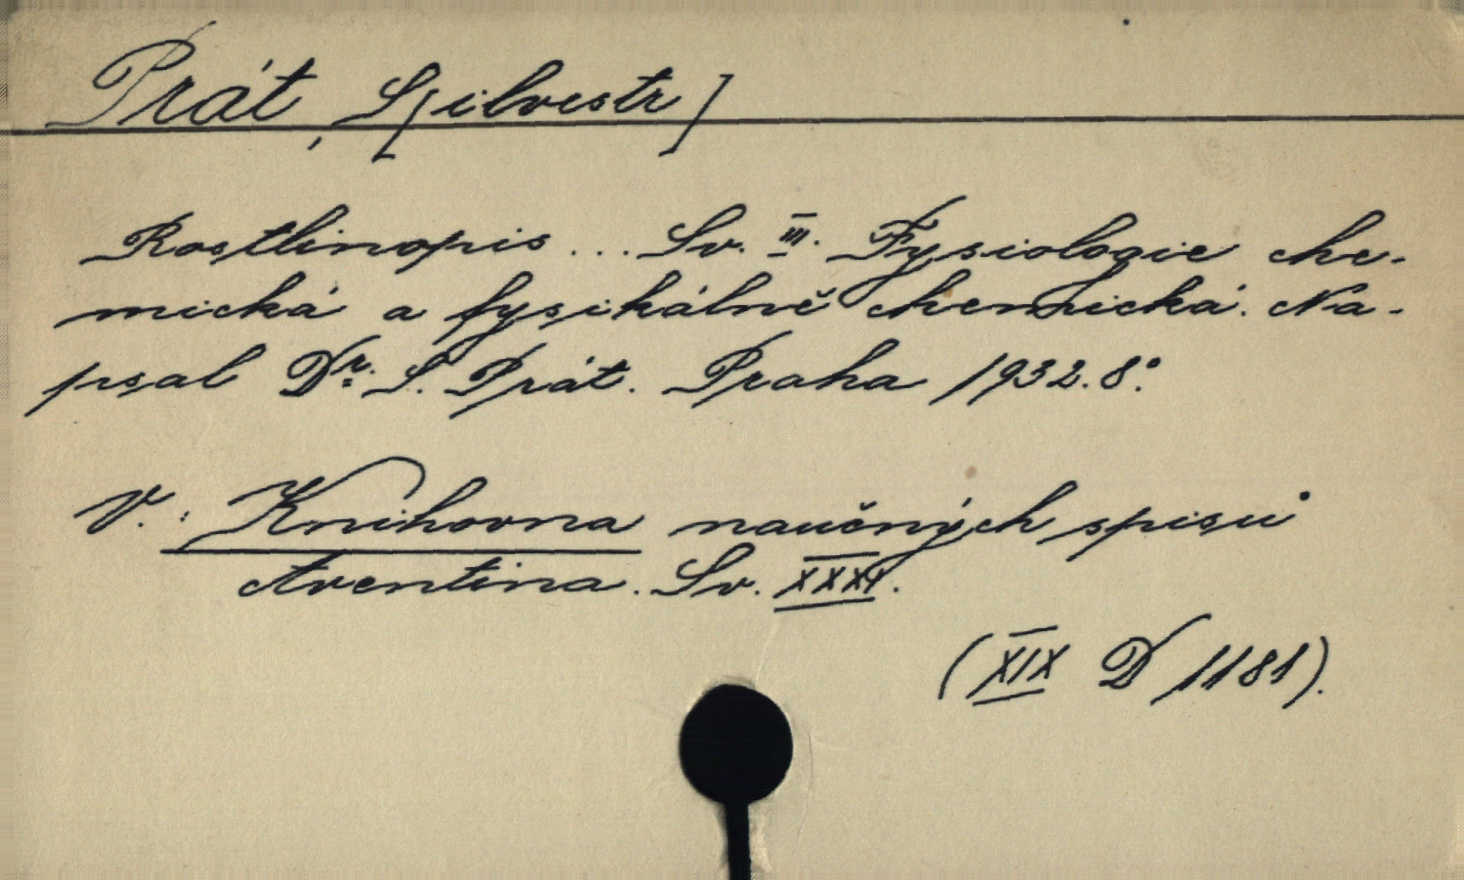 Prát, S[ilvestr]
Rostlinopis ... Sv. III. Fysiologie che-
mická a fysikálně chemická. Na-
psal Dr. S. Prát. Praha 1932. 8°.
V.: Knihovna naučných spisů
Aventina. Sv. XXXI.
(XIX D 1181).